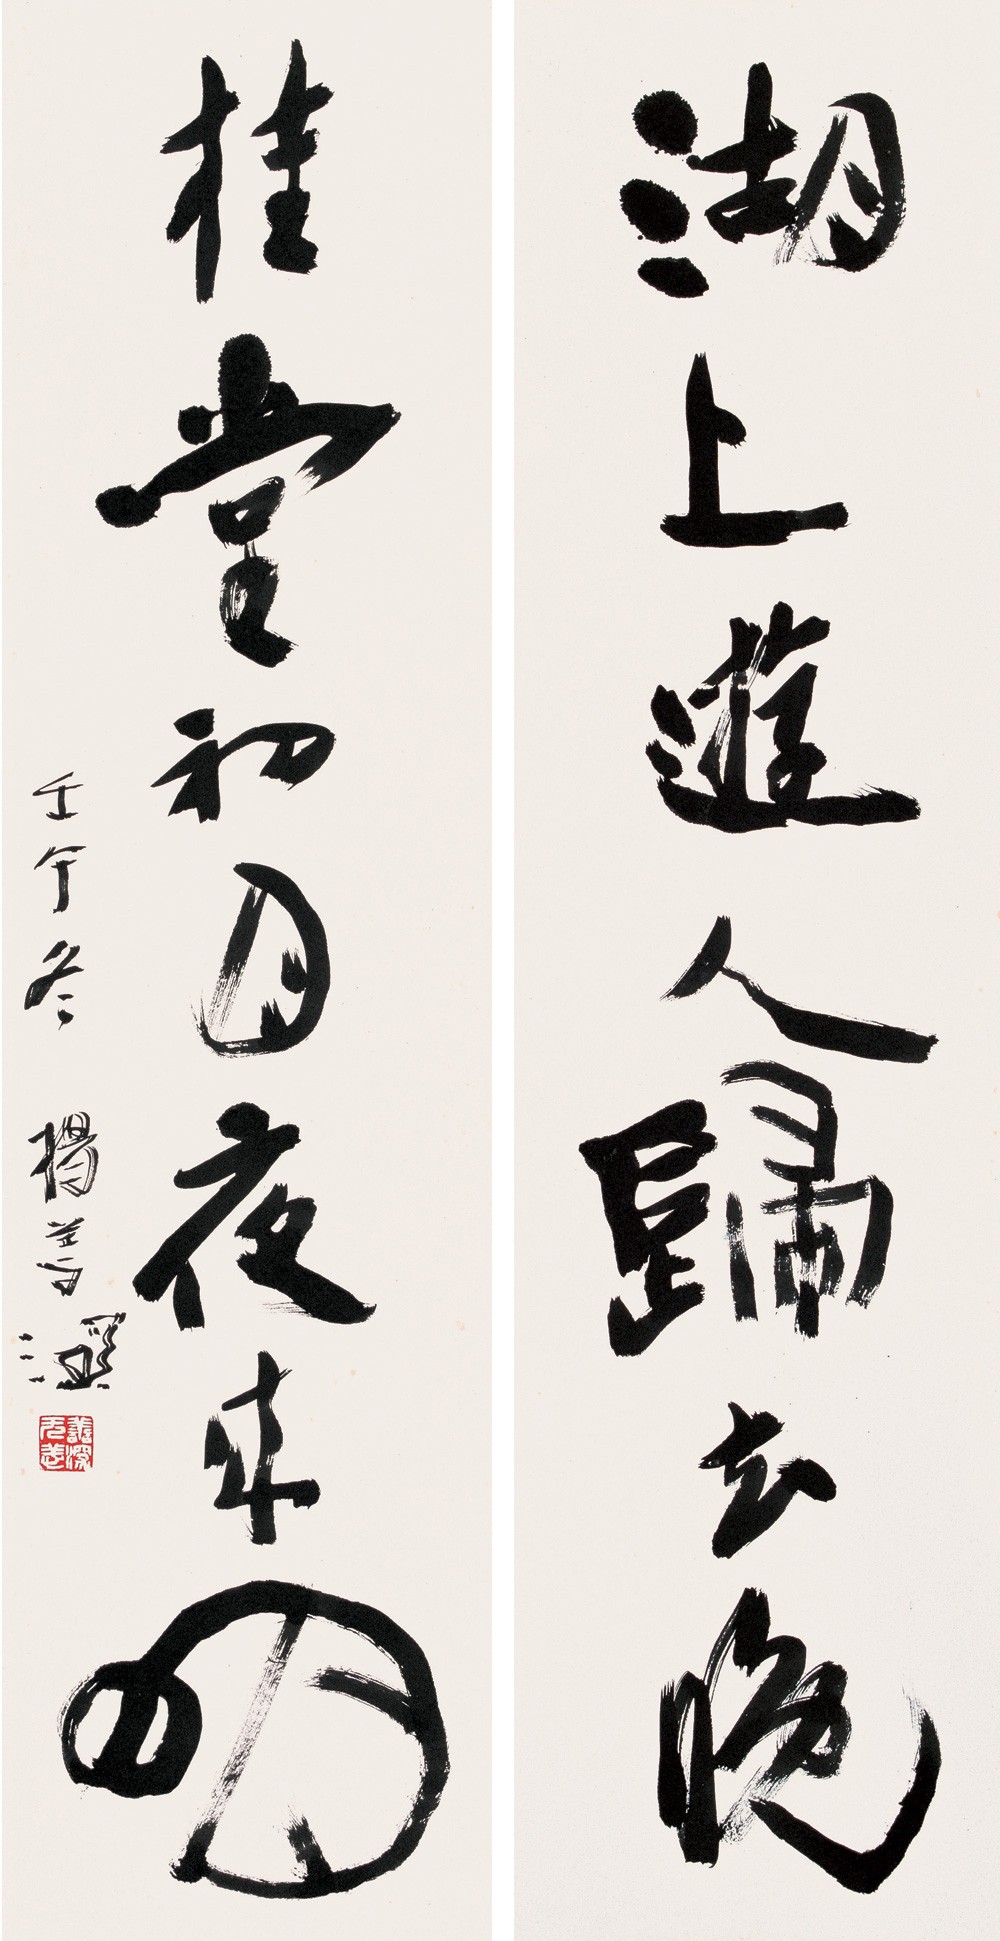 湖上遊人歸去晚
桂堂初月夜來明
壬午冬 楊善深